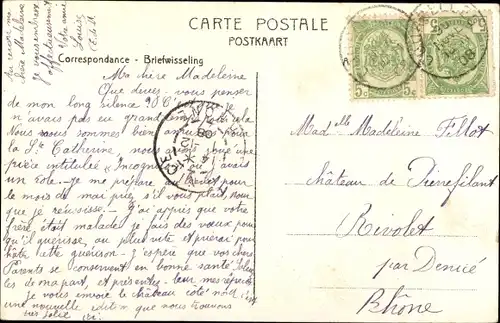 CARTE POSTALE
POSTKAART
Correspondance - Briefwisseling
Au revoir ma
chère Madeleine
Je vous embrasse
affectueusement
Votre amie
Louise
Ma chère Madeleine
Que devez-vous penser
de mon long silence je
n'avais pas eu grand temps
Nous nous sommes bien amusées pour
la Ste Catherine, nous avons joué une
pièce intitulée "Incognito" où j'avais
un rôle. Je me prépare pour
le mois de mai priez s'il vous plait, pour
que je réussisse. J'ai appris que votre
frère était malade je fais des vœux pour
qu'il guérisse au plus vite et prierai pour
hâter cette guérison. J'espère que vos chers
Parents se conservent en bonne santé
les de ma part, et présentez-leur mes respects
je vous envoie le château côté nord c'est
une nouvelle édition que nous trouvons
très jolie
Mad elle Madeleine Fillot
château de Pierrefilant
Rivolet
par Denicé
Rhône
5
5
5c